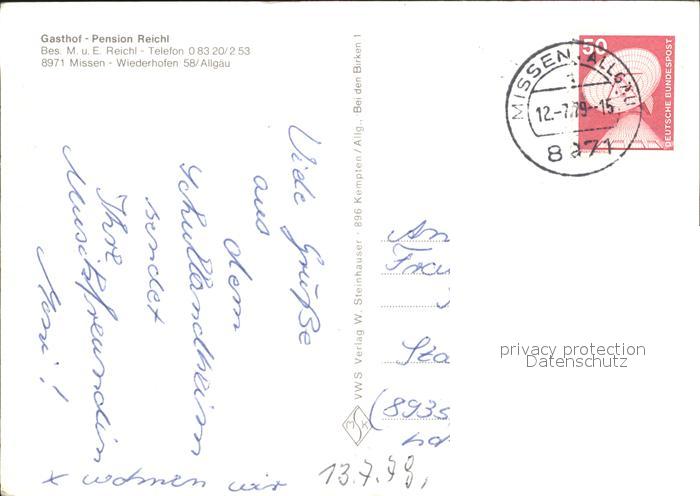 Gasthof - Pension Reichl
Bes. M. u. E. Reichl - Telefon 0 83 20/2 53
8971 Missen - Wiederhofen 58/Allgäu
Viele Grüße
aus
dem
Schullandheim
sendet
Ihre
Musikfreundin
x wohnen wir
13.7.79,
VWS Verlag W. Steinhauser · 896 Kempten/Allg., Bei den Birken 1
MISSEN, ALLGÄU
1
12.-7.79--15
8971
50
DEUTSCHE BUNDESPOST
An
Frau
Sta
(8935
privacy protection
Datenschutz